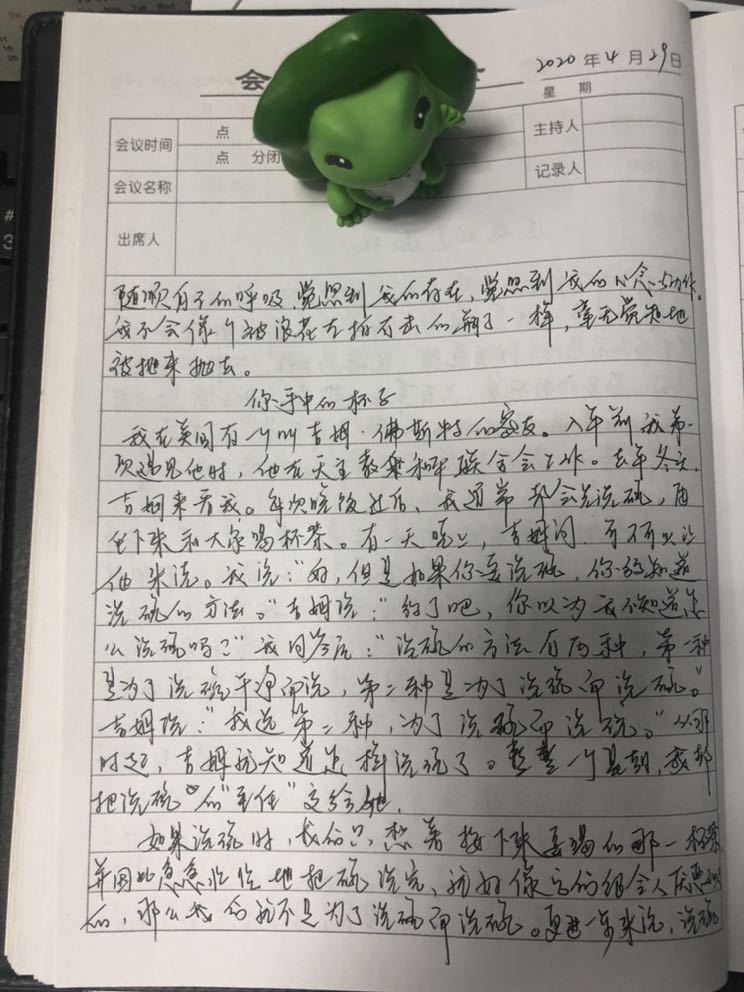 2020 年 4 月 29 日
会
星 期
会议时间 点 主持人
点 分闭
会议名称 记录人
出席人
随顺自己的呼吸,觉照到我的存在,觉照到我的心念与动作。
我不会像个被浪花左拍右击的瓶子一样,毫无觉知地
被抛来抛去。
你手中的杯子
我在美国有一个叫吉姆·佛斯特的密友。八年前我第一
次遇见他时,他在天主教和平联合会工作。去年冬天,
吉姆来看我。每次晚饭过后,我通常都会先洗碗,再
坐下来和大家喝杯茶。有一天晚上,吉姆问可不可以让
他来洗。我说:“好,但是如果你要洗碗,你得知道
洗碗的方法。”吉姆说:“得了吧,你以为我不知道怎
么洗碗吗?”我回答说:“洗碗的方法有两种,第一种
是为了洗碗干净而洗,第二种是为了洗碗而洗碗。”
吉姆说:“我选第二种,为了洗碗而洗碗。”从那
时起,吉姆就知道怎样洗碗了。整整一个星期,我都
把洗碗的“责任”交给他。
如果洗碗时,我们只想着接下来要喝的那一杯茶
并因此急急忙忙地把碗洗完,就好像它们很令人厌恶似
的,那么我们就不是为了洗碗而洗碗。更进一步来说,洗碗